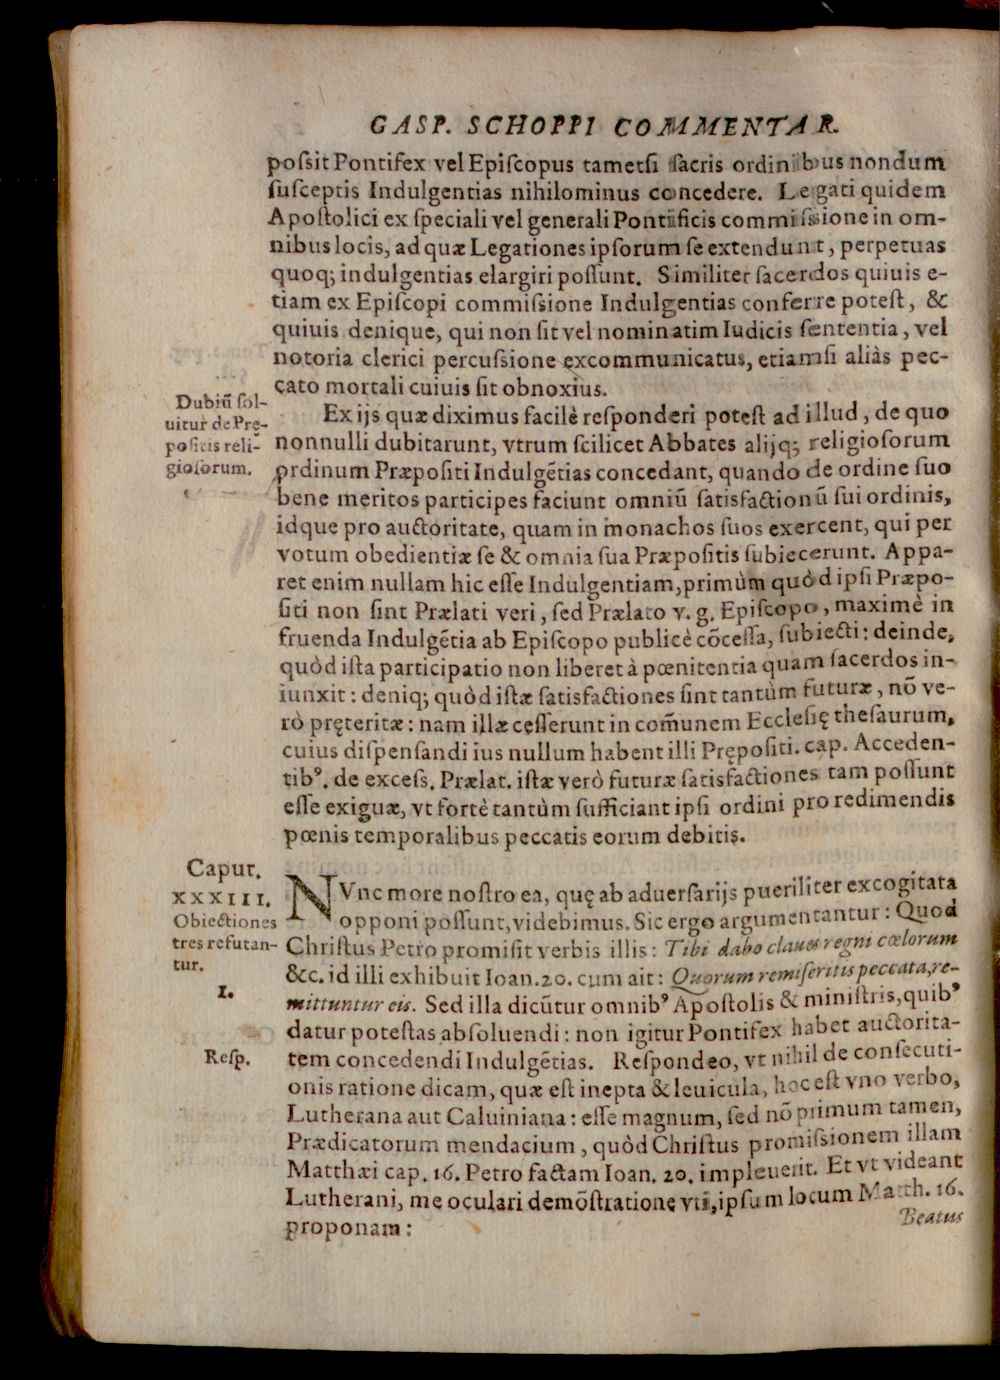 GASP. SCHOPPI COMMENTAR.
possit Pontifex vel Episcopus tametsi sacris ordinibus nondum
susceptis Indulgentias nihilominus concedere. Legati quidem
Apostolici ex speciali vel generali Pontificis commissione in om-
nibus locis, ad quæ Legationes ipsorum se extendunt, perpetuas
quoq; indulgentias elargiri possunt. Similiter sacerdos quiuis e-
tiam ex Episcopi commissione Indulgentias conferre potest, &
quiuis denique, qui non sit vel nominatim Iudicis sententia, vel
notoria clerici percussione excommunicatus, etiamsi aliàs pec-
cato mortali cuiuis sit obnoxius.
Dubiũ sol-
uitur de Prę-
positis reli-
giosorum.
Ex ijs quæ diximus facilè responderi potest ad illud, de quo
nonnulli dubitarunt, vtrum scilicet Abbates alijq; religiosorum
ordinum Præpositi Indulgẽtias concedant, quando de ordine suo
bene meritos participes faciunt omniũ satisfactionũ sui ordinis,
idque pro auctoritate, quam in monachos suos exercent, qui per
votum obedientiæ se & omnia sua Præpositis subiecerunt. Appa-
ret enim nullam hic esse Indulgentiam, primùm quòd ipsi Præpo-
siti non sint Prælati veri, sed Prælato v. g. Episcopo, maximè in
fruenda Indulgẽtia ab Episcopo publicè cõcessa, subiecti: deinde,
quòd ista participatio non liberet à pœnitentia quam sacerdos in-
iunxit: deniq; quòd istæ satisfactiones sint tantùm futuræ, nõ ve-
rò pręteritæ: nam illæ cesserunt in com̃unem Ecclesię thesaurum,
cuius dispensandi ius nullum habent illi Prępositi. cap. Acceden-
tibꝰ. de excess. Prælat. istæ verò futuræ satisfactiones tam possunt
esse exiguæ, vt fortè tantùm sufficiant ipsi ordini pro redimendis
pœnis temporalibus peccatis eorum debitis.
Caput.
XXXIII.
Obiectiones
tres refutan-
tur.
I.
Resp.
NVnc more nostro ea, quę ab aduersarijs pueriliter excogitata
opponi possunt, videbimus. Sic ergo argumentantur: Quod
Christus Petro promisit verbis illis: Tibi dabo claues regni cœlorum
&c. id illi exhibuit Ioan. 20. cum ait: Quorum remiseritis peccata, re-
mittuntur eis. Sed illa dicũtur omnibꝰ Apostolis & ministris, quibꝰ
datur potestas absoluendi: non igitur Pontifex habet auctorita-
tem concedendi Indulgẽtias. Respondeo, vt nihil de consecuti-
onis ratione dicam, quæ est inepta & leuicula, hoc est vno verbo,
Lutherana aut Caluiniana: esse magnum, sed nõ primum tamen,
Prædicatorum mendacium, quòd Christus promissionem illam
Matthæi cap. 16. Petro factam Ioan. 20. impleuerit. Et vt videant
Lutherani, me oculari demõstratione vti, ipsum locum Matth. 16.
proponam:
Beatus